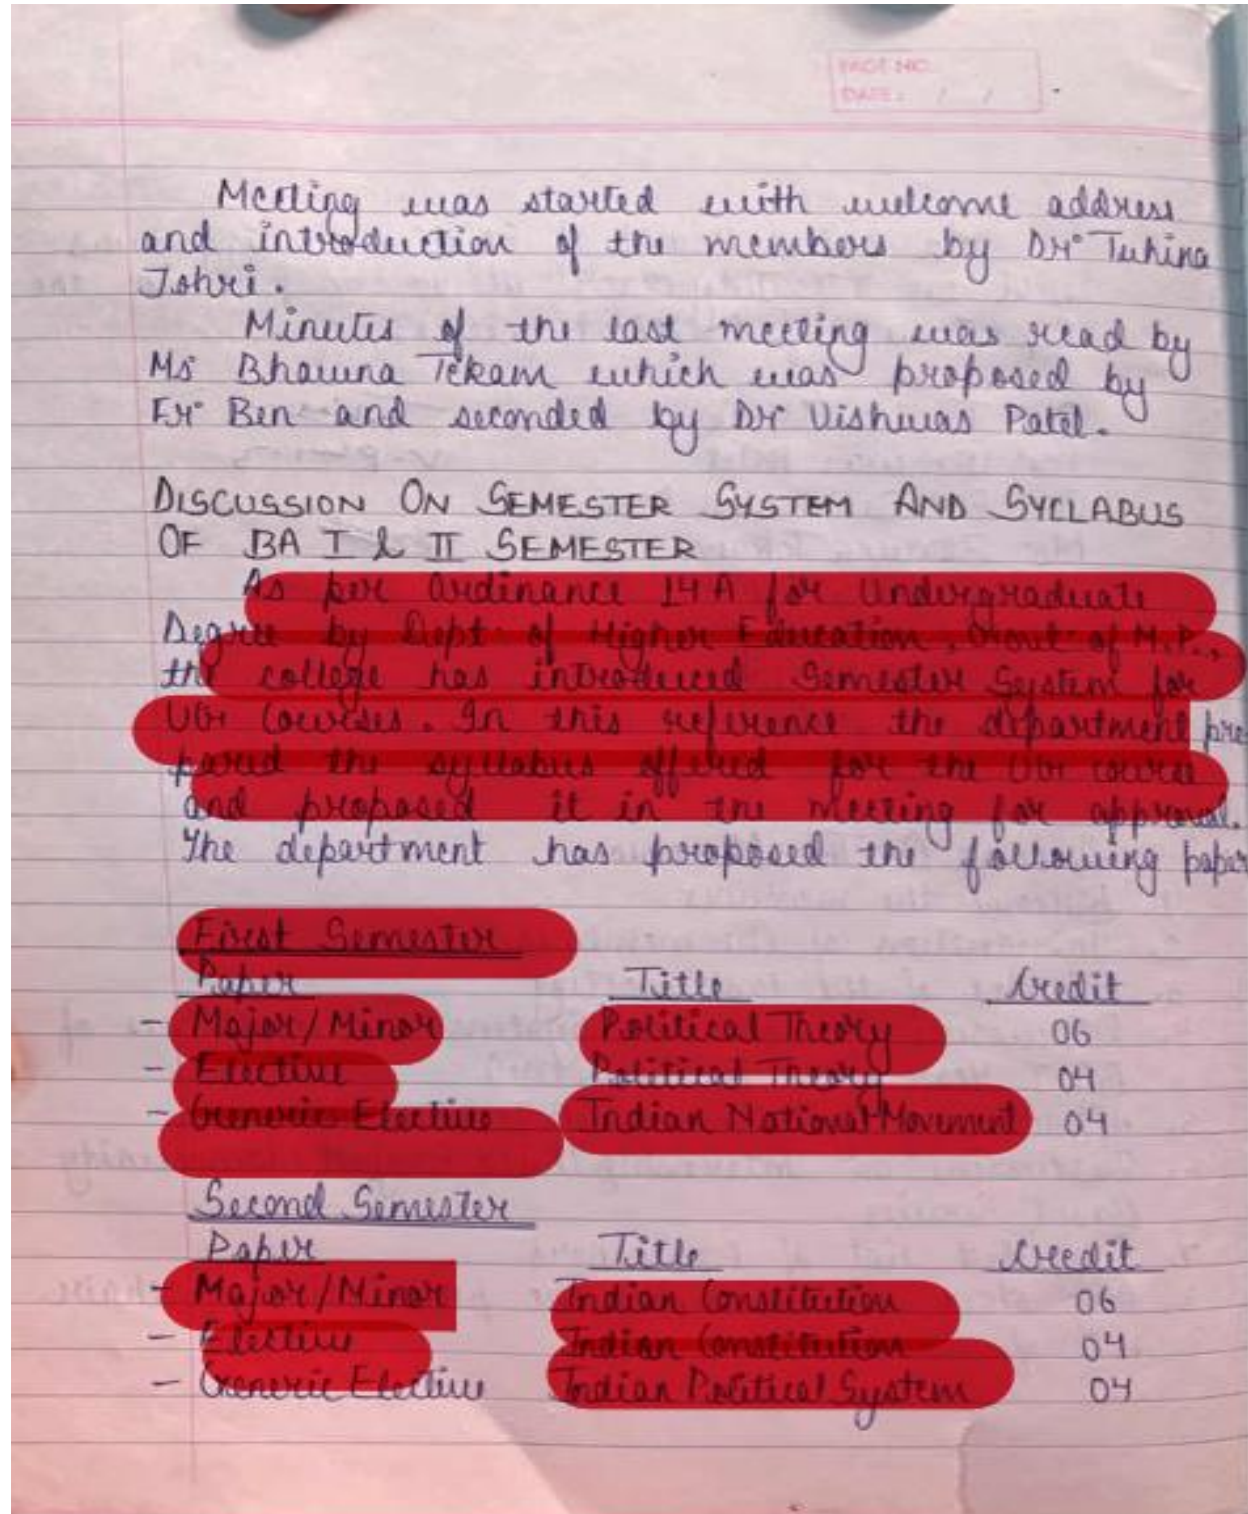 PAGE NO.
DATE: / /
Meeting was started with welcome address
and introduction of the members by Dr Tuhina
Johri.
Minutes of the last meeting was read by
Ms Bhawna Tekam which was proposed by
Fr Ben and seconded by Dr Vishwas Patel.
DISCUSSION ON SEMESTER SYSTEM AND SYLLABUS
OF BA I & II SEMESTER
As per Ordinance 14A for Undergraduate
Degree by Dept. of Higher Education, Govt. of M.P.,
the college has introduced Semester System for
UG Courses. In this reference the department pre
pared the syllabus offered for the UG course
and proposed it in the meeting for approval.
The department has proposed the following paper
First Semester
Paper Title Credit
- Major/Minor Political Theory 06
- Elective Political Theory 04
- Generic Elective Indian National Movement 04
Second Semester
Paper Title Credit
- Major/Minor Indian Constitution 06
- Elective Indian Constitution 04
- Generic Elective Indian Political System 04